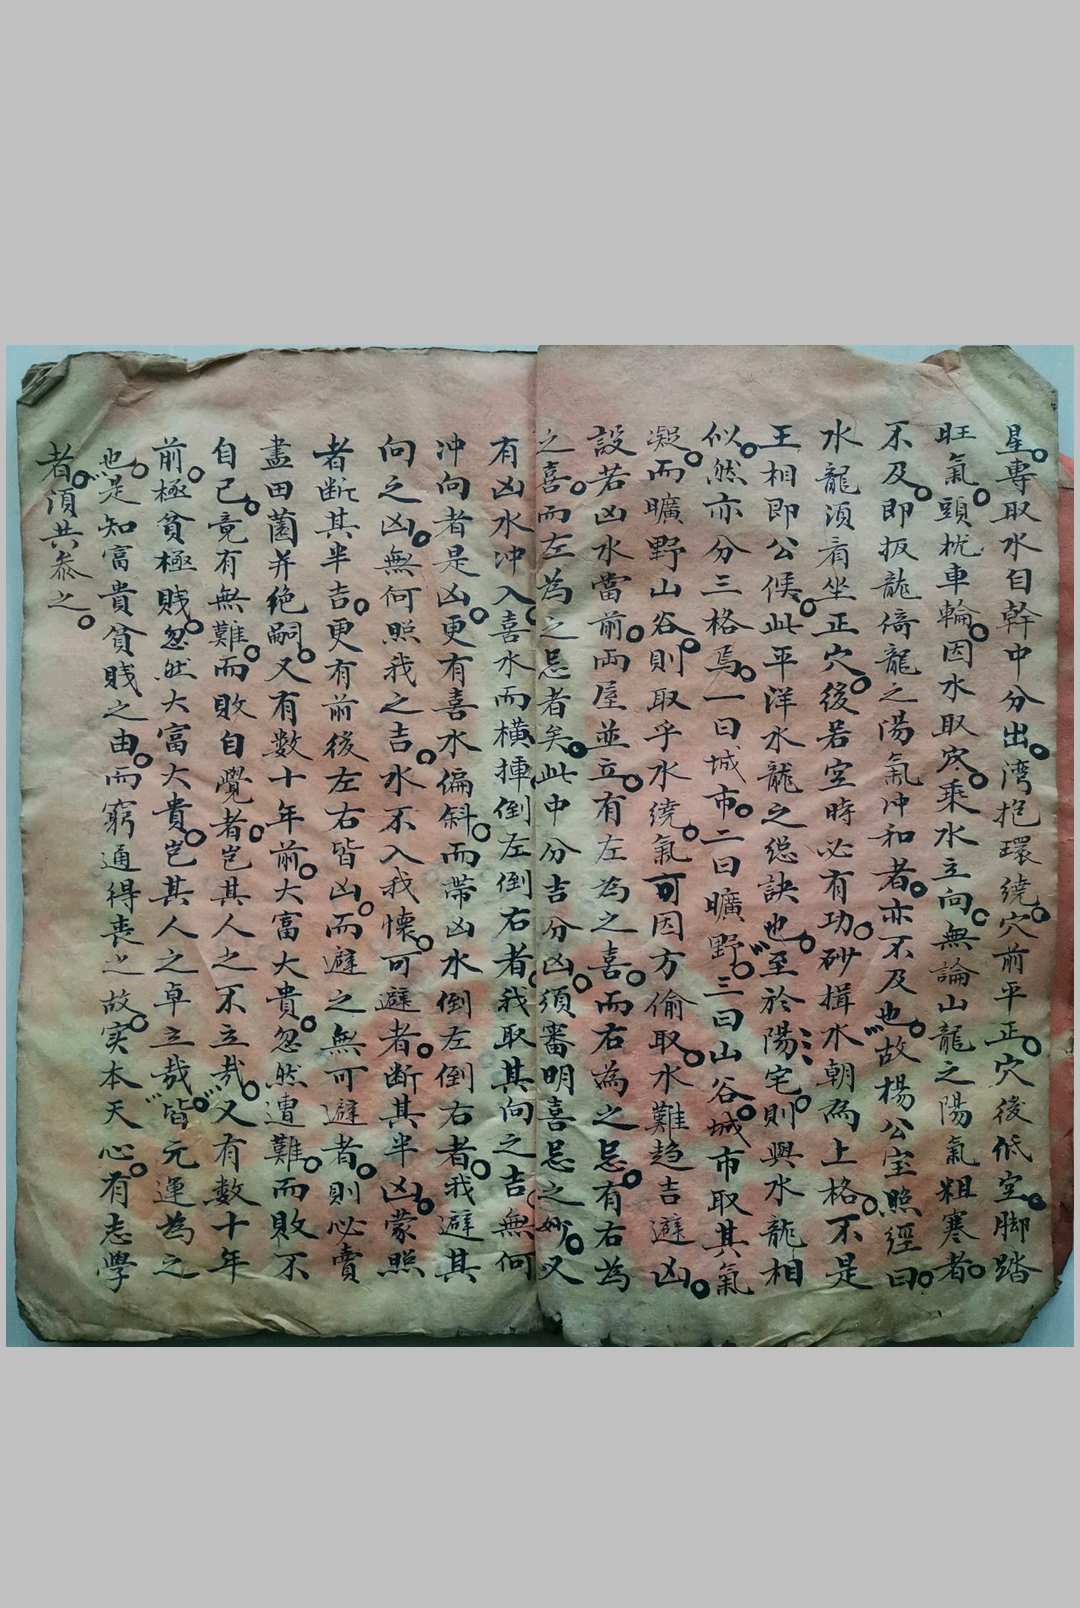 星專取水自幹中分出湾抱環繞穴前平正穴後低空脚踏
旺氣頭枕車輪因水取穴乘水立向無論山龍之陽氣粗寒者
不及即扳龍倚龍之陽氣冲和者亦不及也故楊公宝照經曰
水龍須看坐正穴後若空時必有功砂揖水朝為上格不是
王相即公侯此平洋水龍之總訣也至於陽宅則與水龍相
似然亦分三格焉一曰城市二曰曠野三曰山谷城市取其氣
凝而曠野山谷則取乎水繞氣可因方偷取水難趋吉避凶
設若凶水當前両屋並立有左為之喜而右為之忌有右為
之喜而左為之忌者矣此中分吉分凶須審明喜忌之妙又
有凶水冲入喜水而橫揮倒左倒右者我取其向之吉無何
冲向者是凶更有喜水偏斜而帶凶水倒左倒右者我避其
向之凶無何照我之吉水不入我懐可避者断其半凶蒙照
者断其半吉更有前後左右皆凶而避之無可避者則必賣
盡田薗并绝嗣又有数十年前大富大貴忽然遭難而敗不
自己竟有無難而敗自覺者岂其人之不立哉又有数十年
前極貧極賎忽然大富大貴岂其人之卓立哉皆元運為之
也是知富貴貧賤之由而窮通得丧之故实本天心有志學
者須共叅之